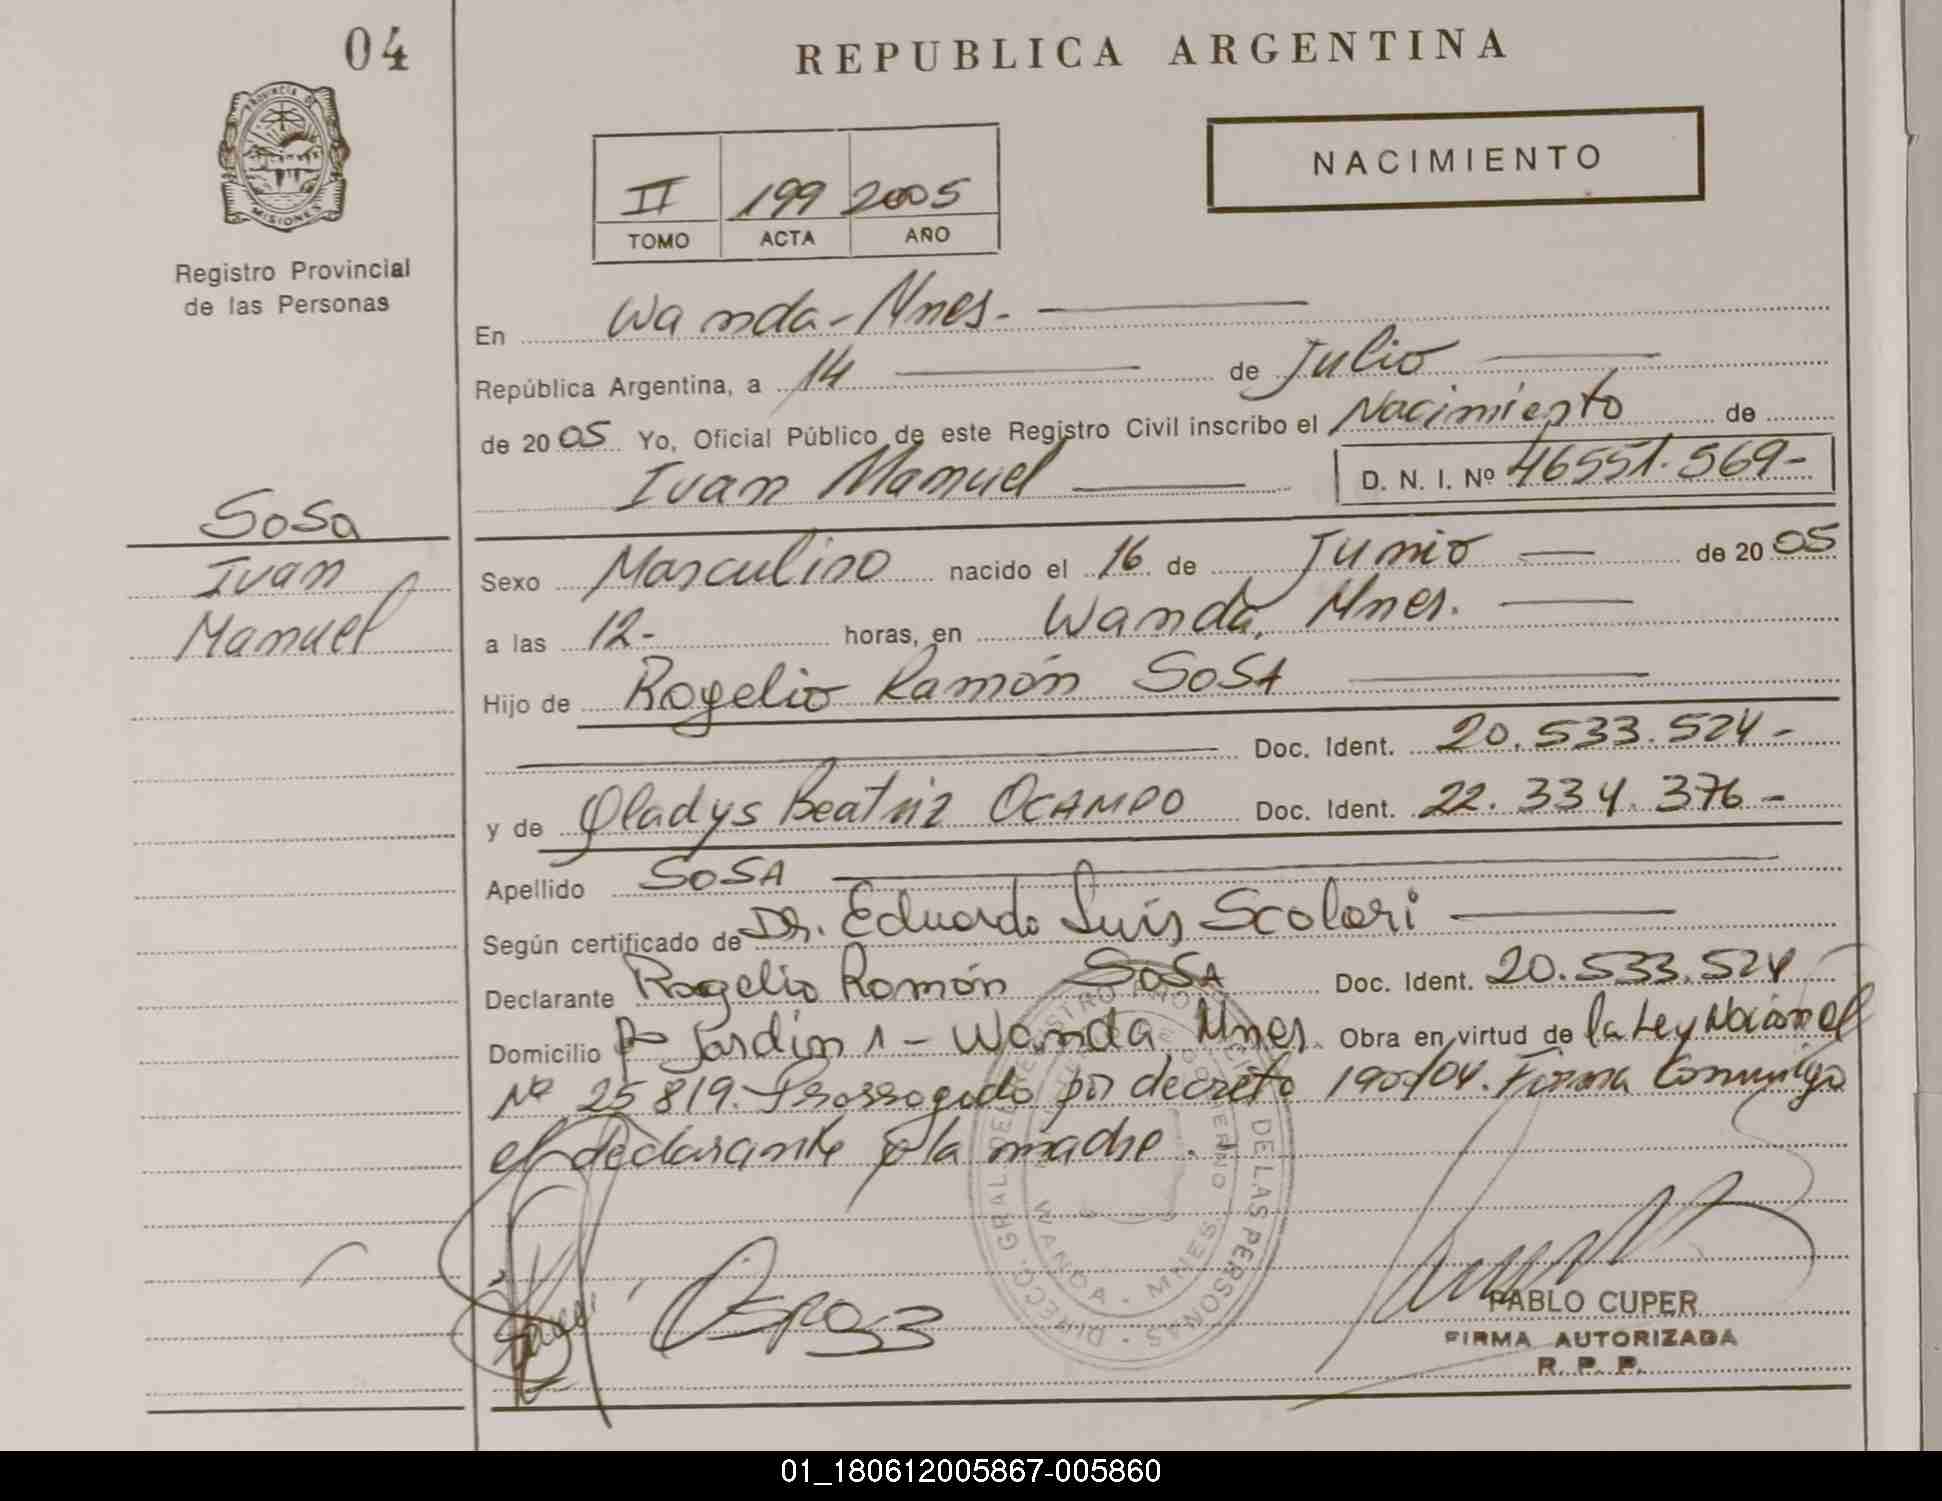 04
REPUBLICA ARGENTINA
PROVINCIA DE
MISIONES
Registro Provincial
de las Personas
NACIMIENTO
II 199 2005
TOMO ACTA AÑO
En Wanda - Mnes.
República Argentina, a 14 de Julio
de 2005 Yo, Oficial Público de este Registro Civil inscribo el Nacimiento de
Ivan Manuel D. N. I. Nº 46551.569-
Sosa
Ivan
Manuel
Sexo Masculino nacido el 16 de Junio de 2005
a las 12- horas, en Wanda, Mnes.
Hijo de Rogelio Ramón SOSA
Doc. Ident. 20.533.524-
y de Gladys Beatriz OCAMPO Doc. Ident. 22.334.376-
Apellido SOSA
Según certificado de Dr. Eduardo Luis Scolari
Declarante Rogelio Ramón SOSA Doc. Ident. 20.533.524
Domicilio Jardin 1 - Wanda, Mnes. Obra en virtud de la Ley Nacional
Nº 25819. Prorrogado por decreto /04. Firma Conmigo
el declarante y la madre.
DE LAS PERSONAS
WANDA - MNES
PABLO CUPER
FIRMA AUTORIZADA
R. P. P.
01_180612005867-005860